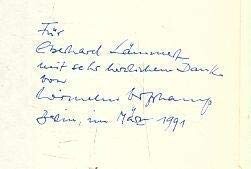 Für
Eberhard Lämmert
mit sehr herzlichem Dank
von
Berlin, im März 1991